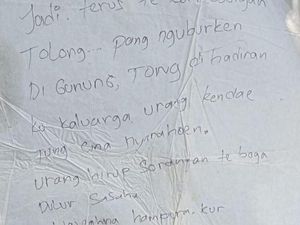 Jadi. terus te
Tolong... pang nguburken
Di Gunung, Tong di hadiran
ku kaluarga urang kendae
Tung ema nyinahoen.
urang hirup sorangan te boga
Dulur sasaha
hampura. kur